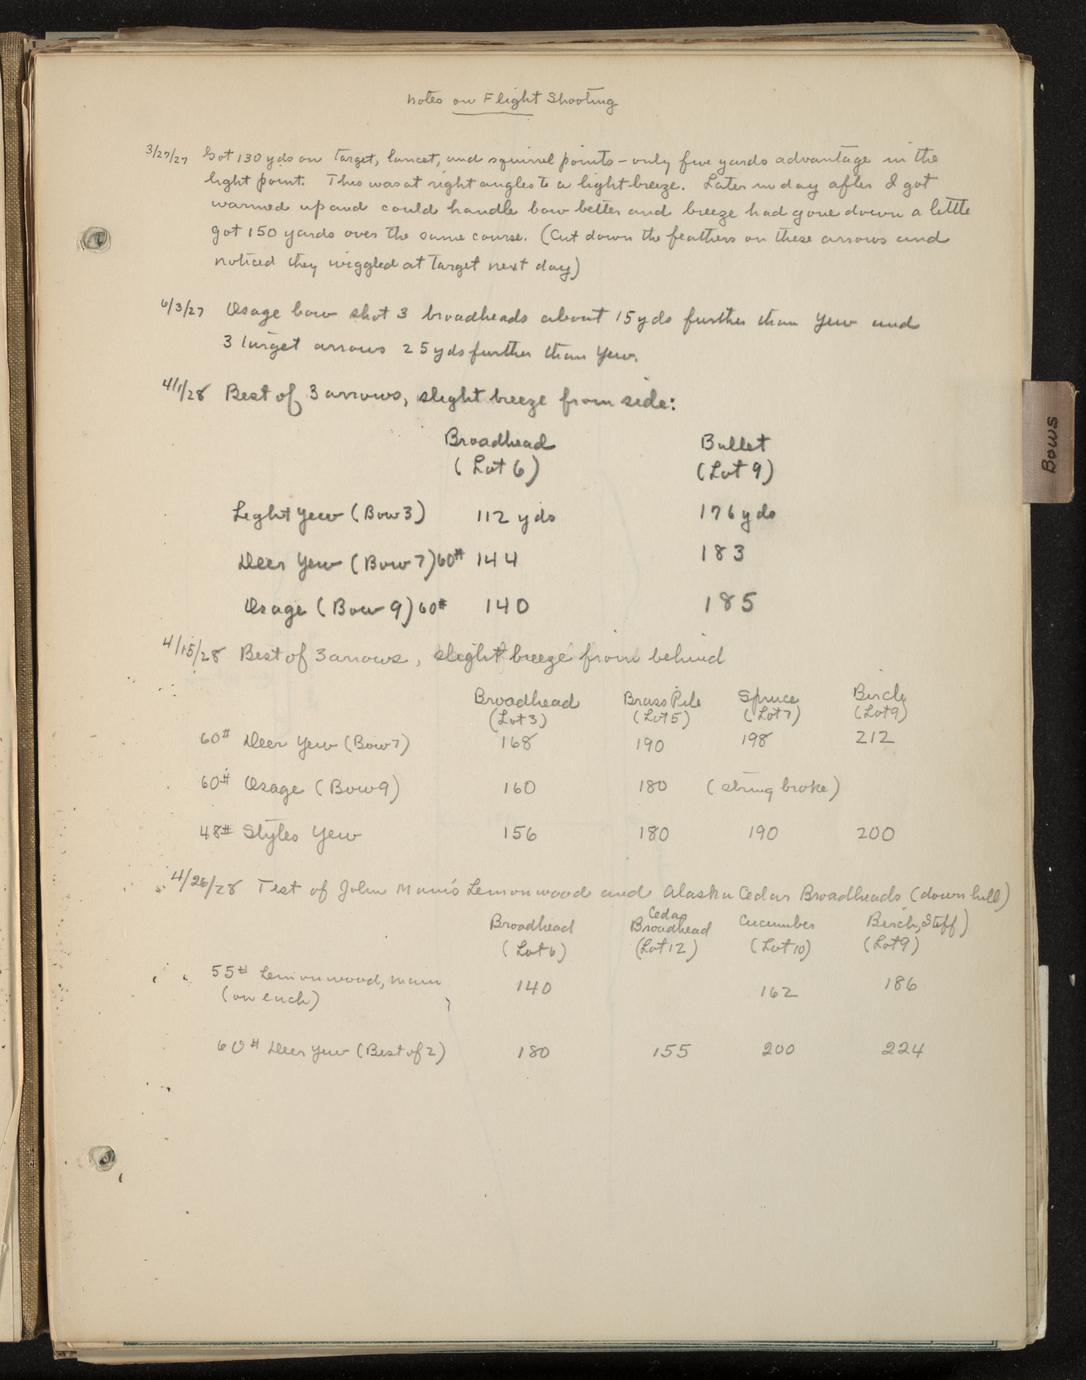 Notes on Flight Shooting
3/27/27 Got 130 yds on target, lancet, and squirrel points - only five yards advantage in the
light point. This was at right angles to a light breeze. Later in day after I got
warmed up and could handle bow better and breeze had gone down a little
got 150 yards over the same course. (Cut down the feathers on these arrows and
noticed they wiggled at target next day)
6/3/27 Osage bow shot 3 broadheads about 15 yds further than Yew and
3 target arrows 25 yds further than Yew.
4/1/28 Best of 3 arrows, slight breeze from side:
Broadhead Bullet
(Lot 6) (Lot 9)
Light Yew (Bow 3) 112 yds 176 yds
Deer Yew (Bow 7) 60# 144 183
Osage (Bow 9) 60# 140 185
4/15/28 Best of 3 arrows, slight breeze from behind
Broadhead Brass Pile Spruce Birch
(Lot 3) (Lot 5) (Lot 7) (Lot 9)
60# Deer Yew (Bow 7) 168 190 198 212
60# Osage (Bow 9) 160 180 (string broke)
48# Styles Yew 156 180 190 200
4/26/28 Test of John Mam's Lemonwood and Alaska Cedar Broadheads (down hill)
Broadhead Cedar Broadhead Cucumber Birch, Stiff)
(Lot 6) (Lot 12) (Lot 10) (Lot 9)
55# Lemonwood, Mam 140 162 186
(on each)
60# Deer Yew (Best of 2) 180 155 200 224
Bows